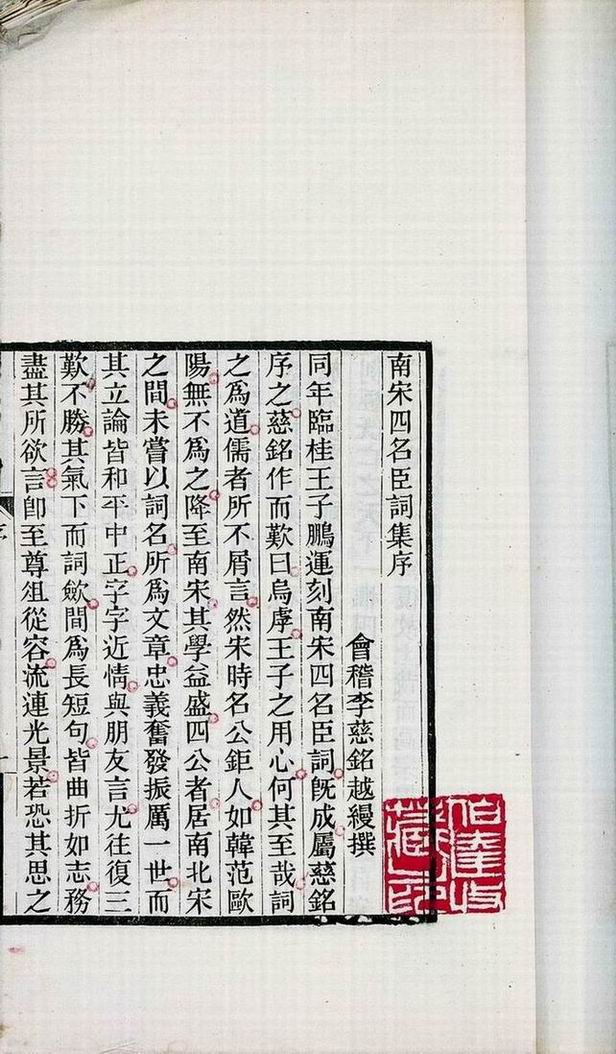 南宋四名臣詞集序
會稽李慈銘越縵撰
同年臨桂王子鵬運刻南宋四名臣詞既成屬慈銘
序之慈銘作而歎曰烏虖王子之用心何其至哉詞
之爲道儒者所不屑言然宋時名公鉅人如韓范歐
陽無不爲之降至南宋其學益盛四公者居南北宋
之間未嘗以詞名所爲文章忠義奮發振厲一世而
其立論皆和平中正字字近情與朋友言尤往復三
歎不勝其氣下而詞斂間爲長短句皆曲折如志務
盡其所欲言卽至尊俎從容流連光景若恐其思之
序
一
伯達收
藏印